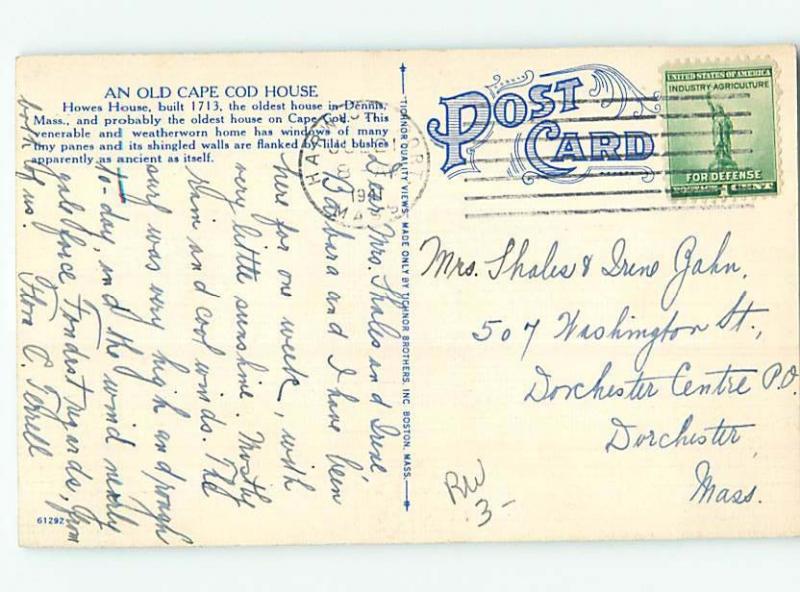 AN OLD CAPE COD HOUSE
Howes House, built 1713, the oldest house in Dennis,
Mass., and probably the oldest house on Cape Cod. This
venerable and weatherworn home has windows of many
tiny panes and its shingled walls are flanked by lilac bushes
apparently as ancient as itself.
Dear Mrs. Shales and Irene,
Barbara and I have been
here for one week, with
very little sunshine. Mostly
rain and cool winds. The
surf was very high and rough
to-day, and the wind nearly
gale force. Fondest regards, from
both of us. Flora C. Terrell
61292
"TICHNOR QUALITY VIEWS," MADE ONLY BY TICHNOR BROTHERS, INC. BOSTON, MASS.
POST
CARD
HARWICH PORT
1941
MASS
UNITED STATES OF AMERICA
INDUSTRY-AGRICULTURE
FOR DEFENSE
Mrs. Shales & Irene Jahn,
507 Washington St.,
Dorchester Centre P.O.
Dorchester
Mass.
RW
3-